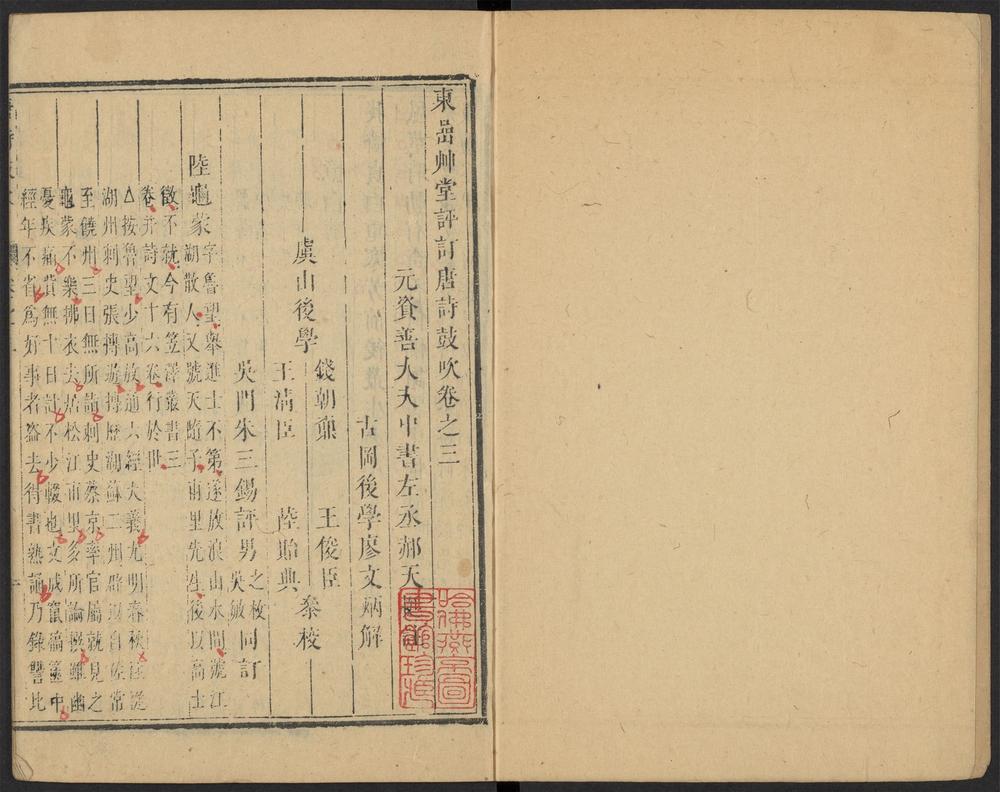 東嵒艸堂評訂唐詩鼓吹卷之三
元資善大夫中書左丞郝天挺註
古岡後學廖文炳解
虞山後學
錢朝鼒
王俊臣
王清臣
陸貽典
叅校
吳門朱三錫評
男
之枚
吳敏
同訂
陸龜蒙
字魯望舉進士不第遂放浪山水間號江
湖散人又號天隨子甫里先生後以高士
徵不就今有笠澤叢書三
卷并詩文十六卷行於世
△按魯望少高放通六經大義尤明春秋往從
湖州刺史張摶遊摶歷湖蘇二州辟以自佐常
至饒州三日無所詣刺史蔡京率官屬就見之
龜蒙不樂拂衣去居松江甫里多所論撰雖幽
憂疾痛貲無十日計不少輟也文成竄稿篋中
經年不省爲好事者盜去得書熟誦乃錄讐比
哈佛燕京圖書館珍藏